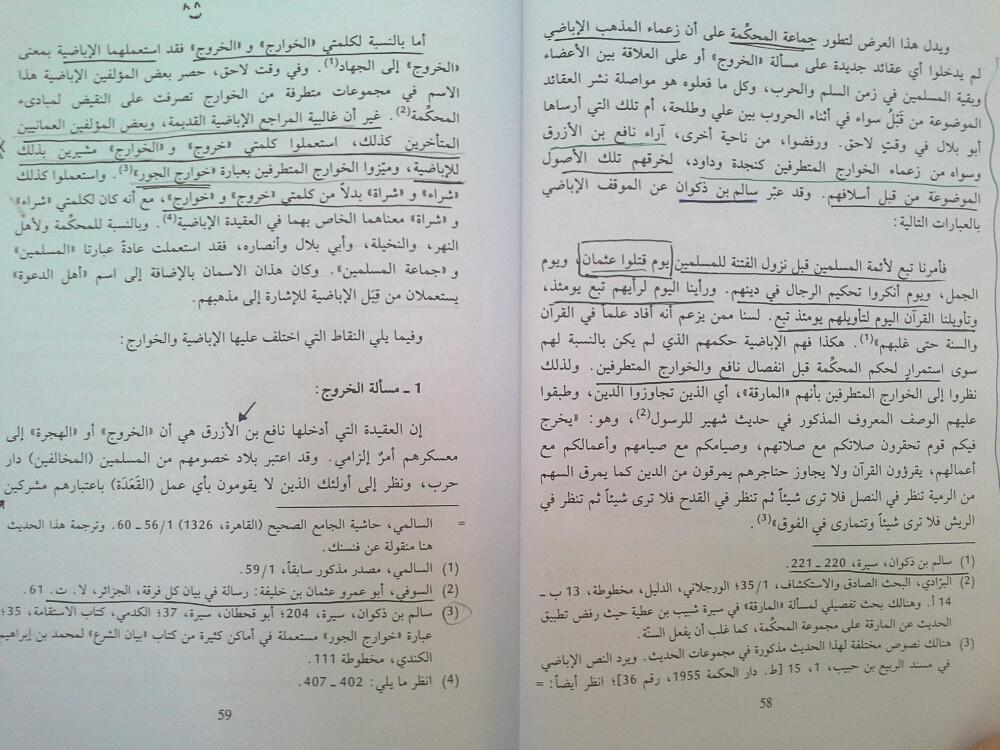 ويدل هذا العرض لتطور جماعة المحكِّمة على أن زعماء المذهب الإباضي
لم يدخلوا أي عقائد جديدة على مسألة «الخروج» أو على العلاقة بين الأعضاء
وبقية المسلمين في زمن السلم والحرب، وكل ما فعلوه هو مواصلة نشر العقائد
الموضوعة من قَبْلُ سواء في أثناء الحروب بين علي وطلحة، أم تلك التي أرساها
أبو بلال في وقتٍ لاحق. ورفضوا، من ناحية أخرى، آراء نافع بن الأزرق
وسواه من زعماء الخوارج المتطرفين كنجدة وداود، لخرقهم تلك الأصول
الموضوعة من قبل أسلافهم. وقد عبّر سالم بن ذكوان عن الموقف الإباضي
بالعبارات التالية:
فأمرنا تبع لأئمة المسلمين قبل نزول الفتنة للمسلمين يوم قتلوا عثمان، ويوم
الجمل، ويوم أنكروا تحكيم الرجال في دينهم. ورأينا اليوم لرأيهم تبع يومئذ،
وتأويلنا القرآن اليوم لتأويلهم يومئذ تبع. لسنا ممن يزعم أنه أفاد علماً في القرآن
والسنة حتى غلبهم»(1). هكذا فهم الإباضية حكمهم الذي لم يكن بالنسبة لهم
سوى استمرارٍ لحكم المحكِّمة قبل انفصال نافع والخوارج المتطرفين. ولذلك
نظروا إلى الخوارج المتطرفين بأنهم «المارقة»، أي الذين تجاوزوا الدين، وطبقوا
عليهم الوصف المعروف المذكور في حديث شهير للرسول(2)، وهو: «يخرج
فيكم قوم تحقرون صلاتكم مع صلاتهم، وصيامكم مع صيامهم وأعمالكم مع
أعمالهم، يقرؤون القرآن ولا يجاوز حناجرهم يمرقون من الدين كما يمرق السهم
من الرمية تنظر في النصل فلا ترى شيئاً ثم تنظر في القدح فلا ترى شيئاً ثم تنظر في
الريش فلا ترى شيئاً وتتمارى في الفوق»(3).
(1) سالم بن ذكوان، سيرة، 220 ـ 221.
(2) البرّادي، البحث الصادق والاستكشاف، 35/1؛ الورجلاني، الدليل، مخطوطة، 13 ب ـ
14 أ. وهنالك بحث تفصيلي لمسألة «المارقة» في سيرة شبيب بن عطية حيث رفض تطبيق
الحديث عن المارقة على مجموعة المحكِّمة، كما غلب أن يفعل السنّة.
(3) هنالك نصوص مختلفة لهذا الحديث مذكورة في مجموعات الحديث. ويرد النص الإباضي
في مسند الربيع بن حبيب، 1، 15 [ط. دار الحكمة 1955، رقم 36]؛ انظر أيضاً: =
58
أما بالنسبة لكلمتي «الخوارج» و «الخروج» فقد استعملهما الإباضية بمعنى
«الخروج» إلى الجهاد(1). وفي وقت لاحق، حصر بعض المؤلفين الإباضية هذا
الاسم في مجموعات متطرفة من الخوارج تصرفت على النقيض لمبادىء
المحكِّمة(2). غير أن غالبية المراجع الإباضية القديمة، وبعض المؤلفين العمانيين
المتأخرين كذلك، استعملوا كلمتي «خروج» و «الخوارج» مشيرين بذلك
للإباضية، وميّزوا الخوارج المتطرفين بعبارة «خوارج الجور»(3). واستعملوا كذلك
«شراء» و «شراة» بدلاً من كلمتي «خروج» و «خوارج»، مع أنه كان لكلمتي «شراء»
و «شراة» معناهما الخاص بهما في العقيدة الإباضية(4). وبالنسبة للمحكِّمة ولأهل
النهر، والنخيلة، وأبي بلال وأنصاره، فقد استعملت عادةً عبارتا «المسلمين»
و «جماعة المسلمين». وكان هذان الاسمان بالإضافة إلى اسم «أهل الدعوة»
يستعملان من قِبَل الإباضية للإشارة إلى مذهبهم.
وفيما يلي النقاط التي اختلف عليها الإباضية والخوارج:
1 ـ مسألة الخروج:
إن العقيدة التي أدخلها نافع بن الأزرق هي أن «الخروج» أو «الهجرة» إلى
معسكرهم أمرٌ إلزامي. وقد اعتبر بلاد خصومهم من المسلمين (المخالفين) دار
حرب، ونظر إلى أولئك الذين لا يقومون بأي عمل (القَعَدَة) باعتبارهم مشركين
= السالمي، حاشية الجامع الصحيح (القاهرة، 1326) 56/1 ـ 60. وترجمة هذا الحديث
هنا منقولة عن فنسنك.
(1) السالمي، مصدر مذكور سابقاً، 59/1.
(2) السوفي، أبو عمرو عثمان بن خليفة: رسالة في بيان كل فرقة، الجزائر، لا. ت. 61.
(3) سالم بن ذكوان، سيرة، 204؛ أبو قحطان، سيرة، 37؛ الكدمي، كتاب الاستقامة، 35؛
عبارة «خوارج الجور» مستعملة في أماكن كثيرة من كتاب «بيان الشرع» لمحمد بن إبراهيم
الكندي، مخطوطة 111.
(4) انظر ما يلي: 402 ـ 407.
59